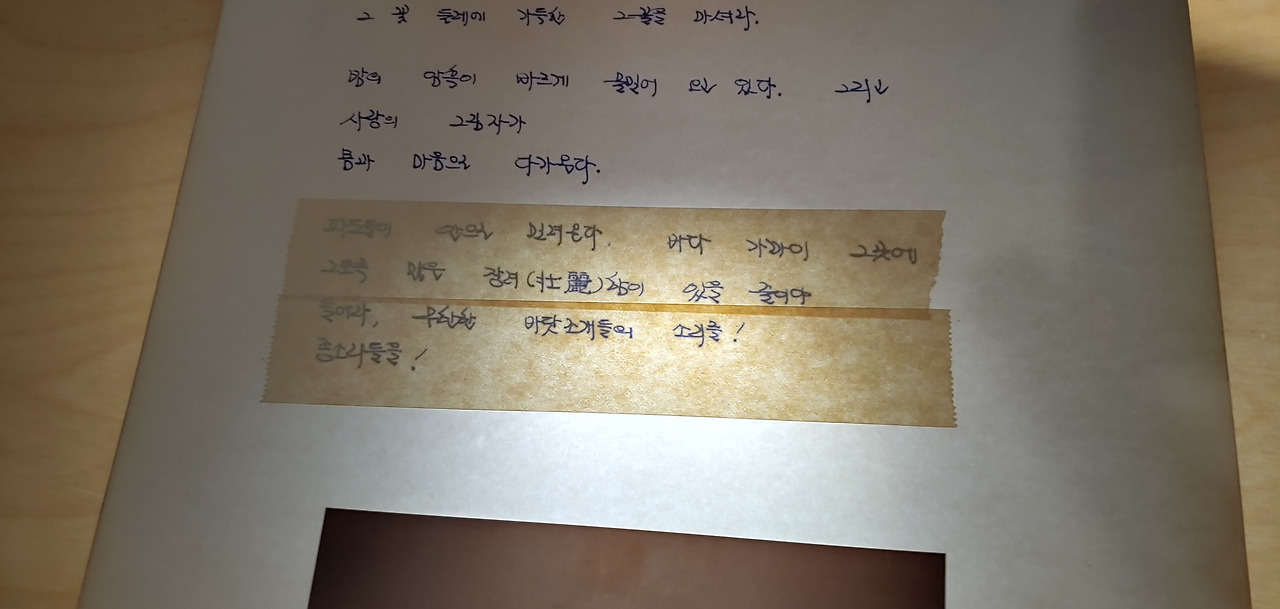 그 꽃 둘레에 가득찬 그 꿀을 마셔라.
밤의 암흑이 빠르게 물밀어 오고 있다. 그러나
사랑의 그림자가
몸과 마음으로 다가온다.
파도들이 앞으로 밀려온다. 바다 가까이 그곳에
그토록 많은 장려(壮麗)함이 있을 줄이야
들어라, 무한한 바닷조개들의 소리를!
종소리들을!